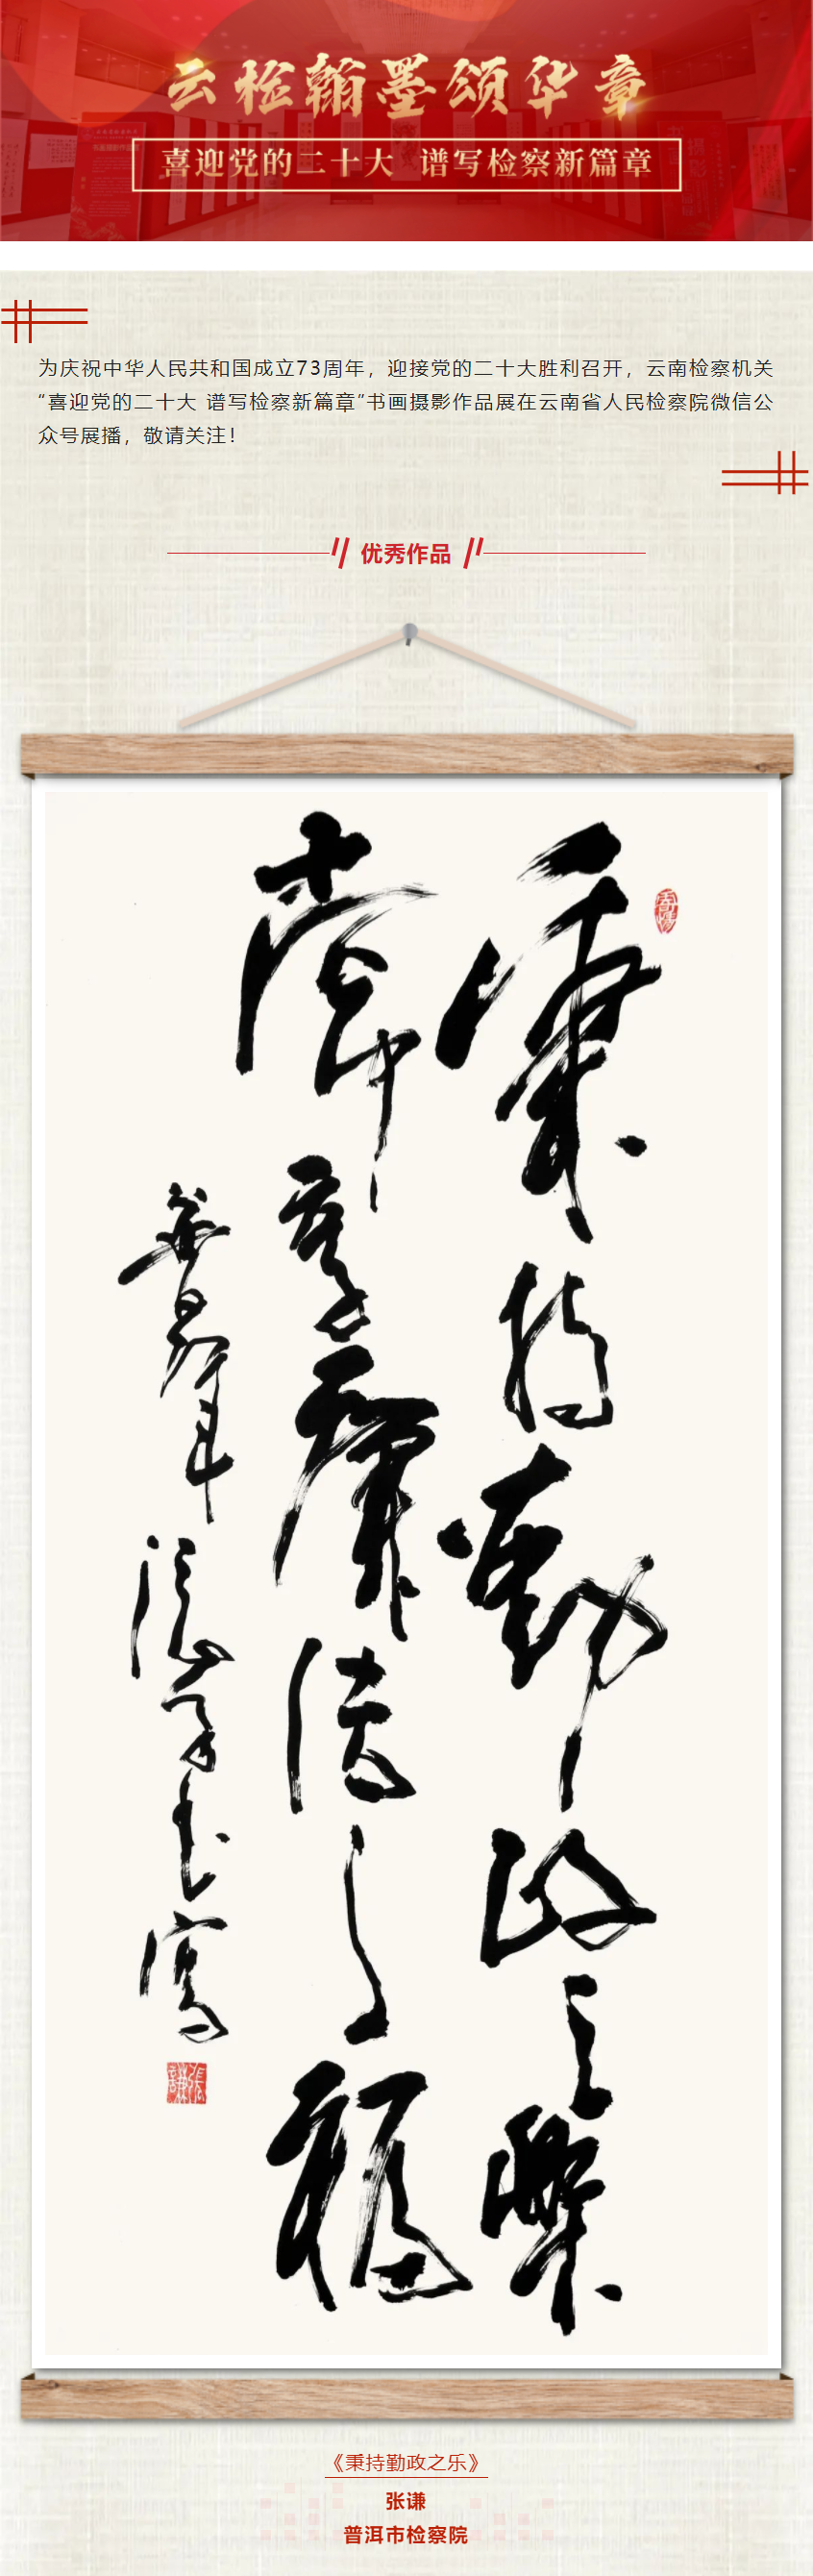 云检翰墨颂华章
喜迎党的二十大 谱写检察新篇章
为庆祝中华人民共和国成立73周年，迎接党的二十大胜利召开，云南检察机关
“喜迎党的二十大 谱写检察新篇章”书画摄影作品展在云南省人民检察院微信公
众号展播，敬请关注！
优秀作品
秉持勤政之樂
常享廉洁之福
张谦书写
張謙
《秉持勤政之乐》
张谦
普洱市检察院